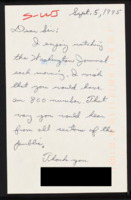 S-WJ
Sept. 5, 1995
Dear Sir:
I enjoy watching
the Washington Journal
each morning. I wish
that you would have
an 800 number. That
way you would hear
from all sectors of the
public.
Thank you